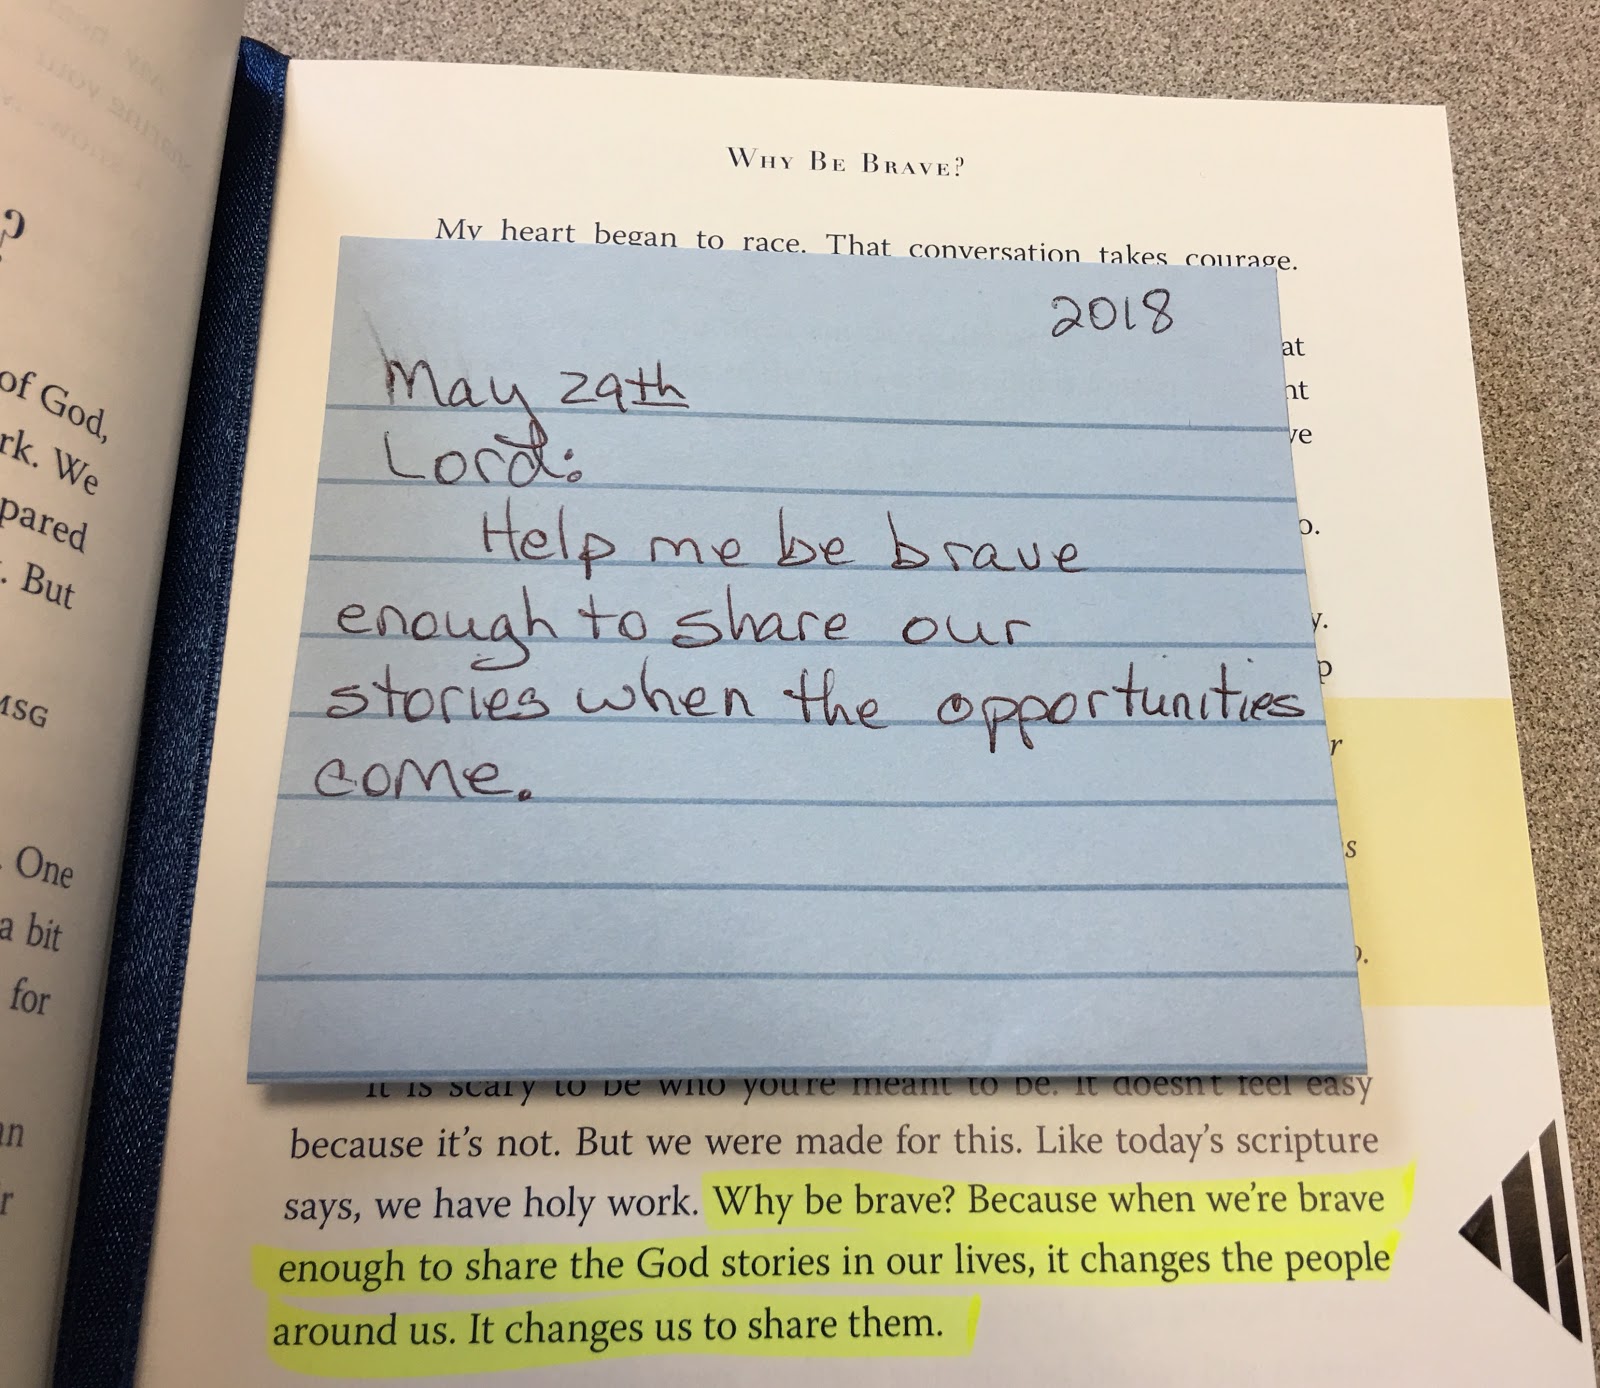 ?
of God,
rk. We
pared
. But
MSG
. One
a bit
for
an
r
WHY BE BRAVE?
My heart began to race. That conversation takes courage.
at
nt
ve
o.
y.
p
r
s
o.
2018
May 29th
Lord:
Help me be brave
enough to share our
stories when the opportunities
come.
It is scary to be who you're meant to be. It doesn't feel easy
because it's not. But we were made for this. Like today's scripture
says, we have holy work. Why be brave? Because when we're brave
enough to share the God stories in our lives, it changes the people
around us. It changes us to share them.